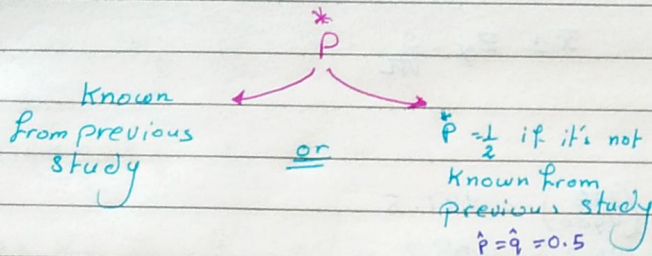 *
P
Known
from previous
study
or
*
P = 1/2 if it's not
Known from
previous study
p̂ = q̂ = 0.5